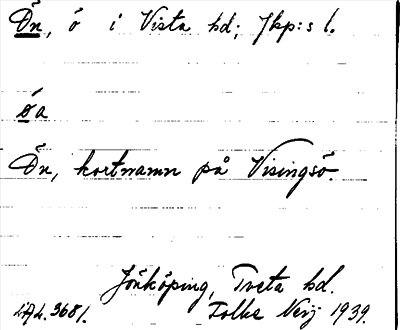 Ön, ö i Vista hd; Jkp:s l.
öa
Ön, kortnamn på Visingsö.
Jönköping, Tveta hd.
LAL. 3681. Folke Nerj 1939.